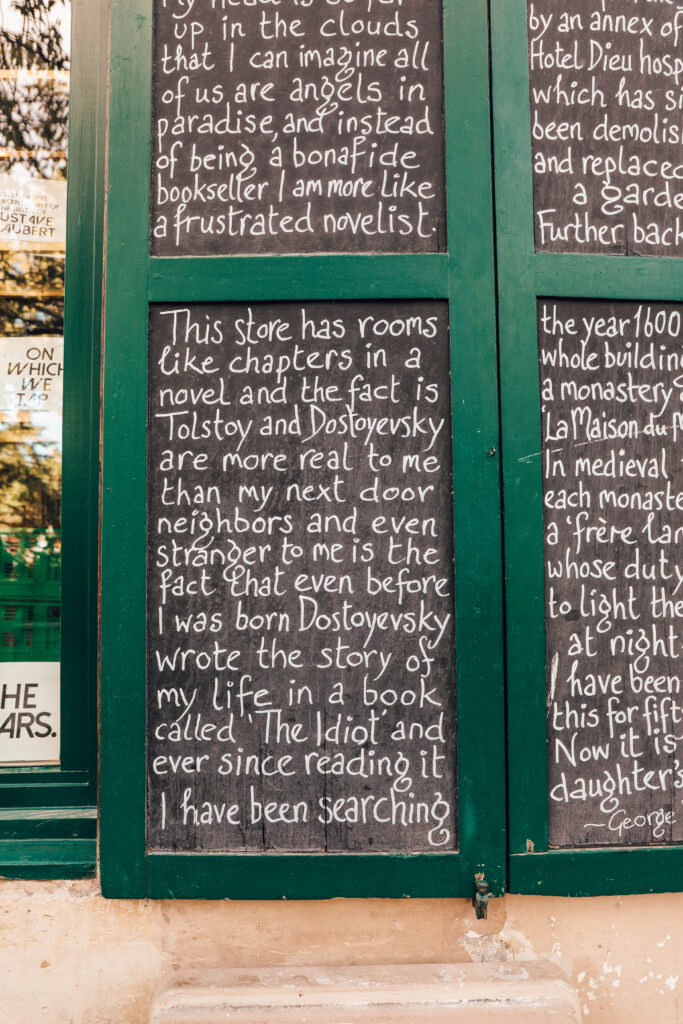 up in the clouds
that I can imagine all
of us are angels in
paradise, and instead
of being a bonafide
bookseller I am more like
a frustrated novelist.
This store has rooms
like chapters in a
novel and the fact is
Tolstoy and Dostoyevsky
are more real to me
than my next door
neighbors and even
stranger to me is the
fact that even before
I was born Dostoyevsky
wrote the story of
my life in a book
called 'The Idiot' and
ever since reading it
I have been searching
by an annex of
Hotel Dieu
which has
been
and replaced
a
Further back
the year 1600
whole building
a monastery
'La Maison du
In medieval
each
a 'frère
whose duty
to light the
at night
I have been
this for
Now it is
daughter's
~George
ON
WHICH
WE
TAP